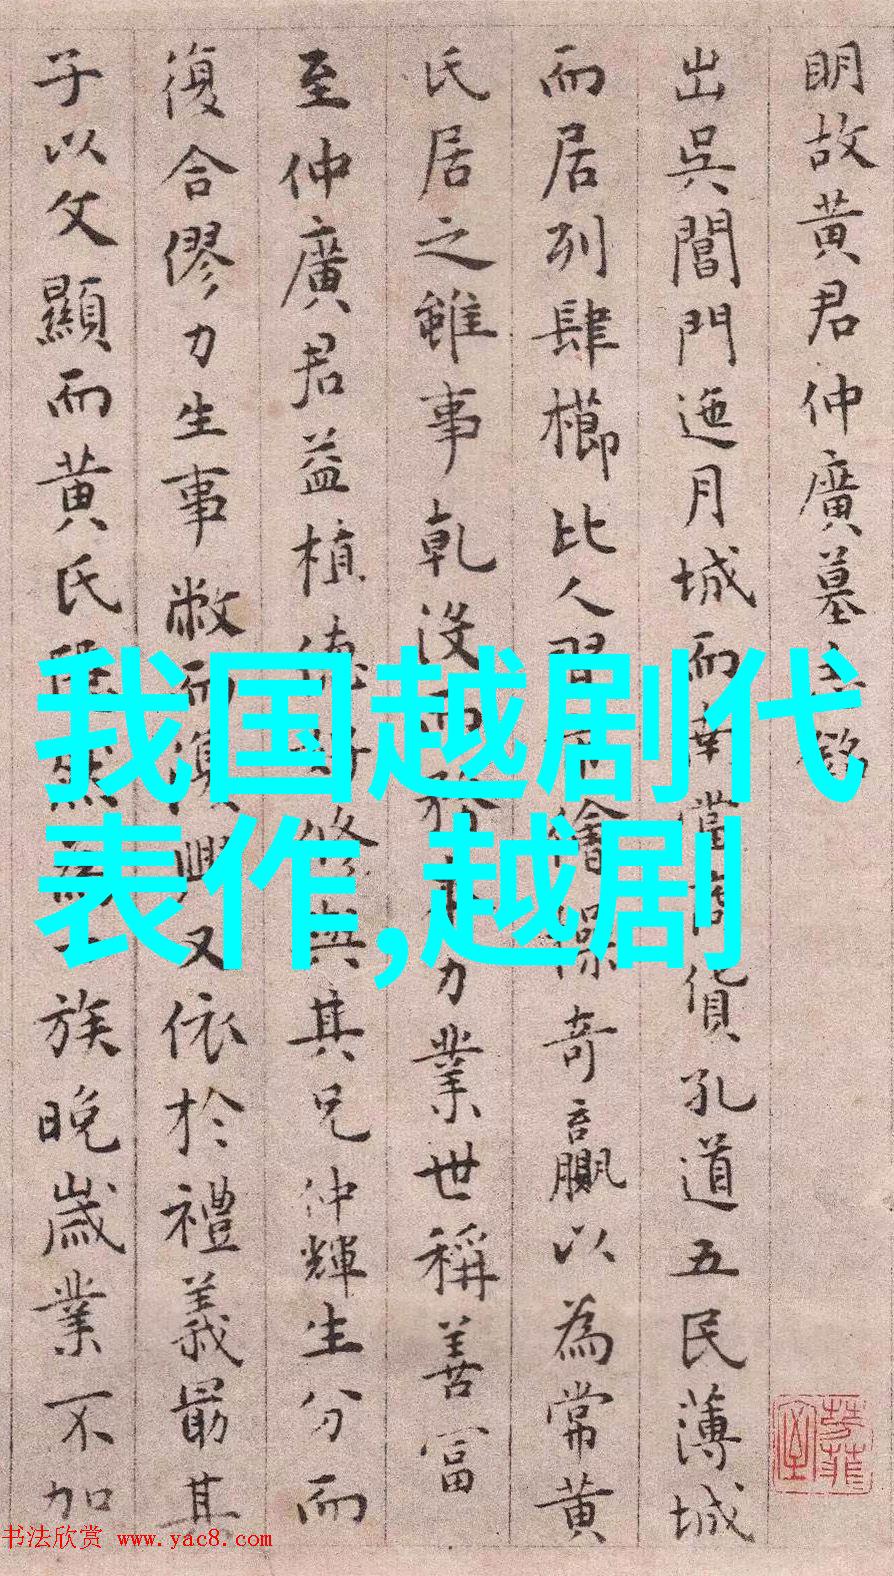 明故黄君仲廣墓銘
出吳閶門迤月城而南當貨孔道五民薄城
而居列肆櫛比人習儈操奇贏以為常黄
氏居之雖事乾没而力業世稱善富
至仲廣君益植德修與其兄仲輝生分而
復合僇力生事敝而復興又依於禮義最其
子以文顯而黄氏然族晚歲業不加
我国越剧代
表作,越剧
书法欣赏 www.yac8.com